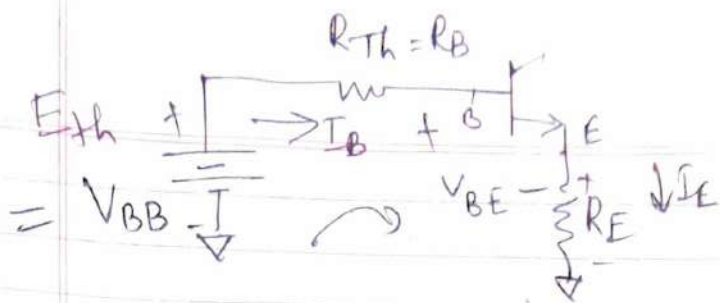 RTh = RB
Eth + → IB + B E
= VBB - VBE - + RE ↓IE
-